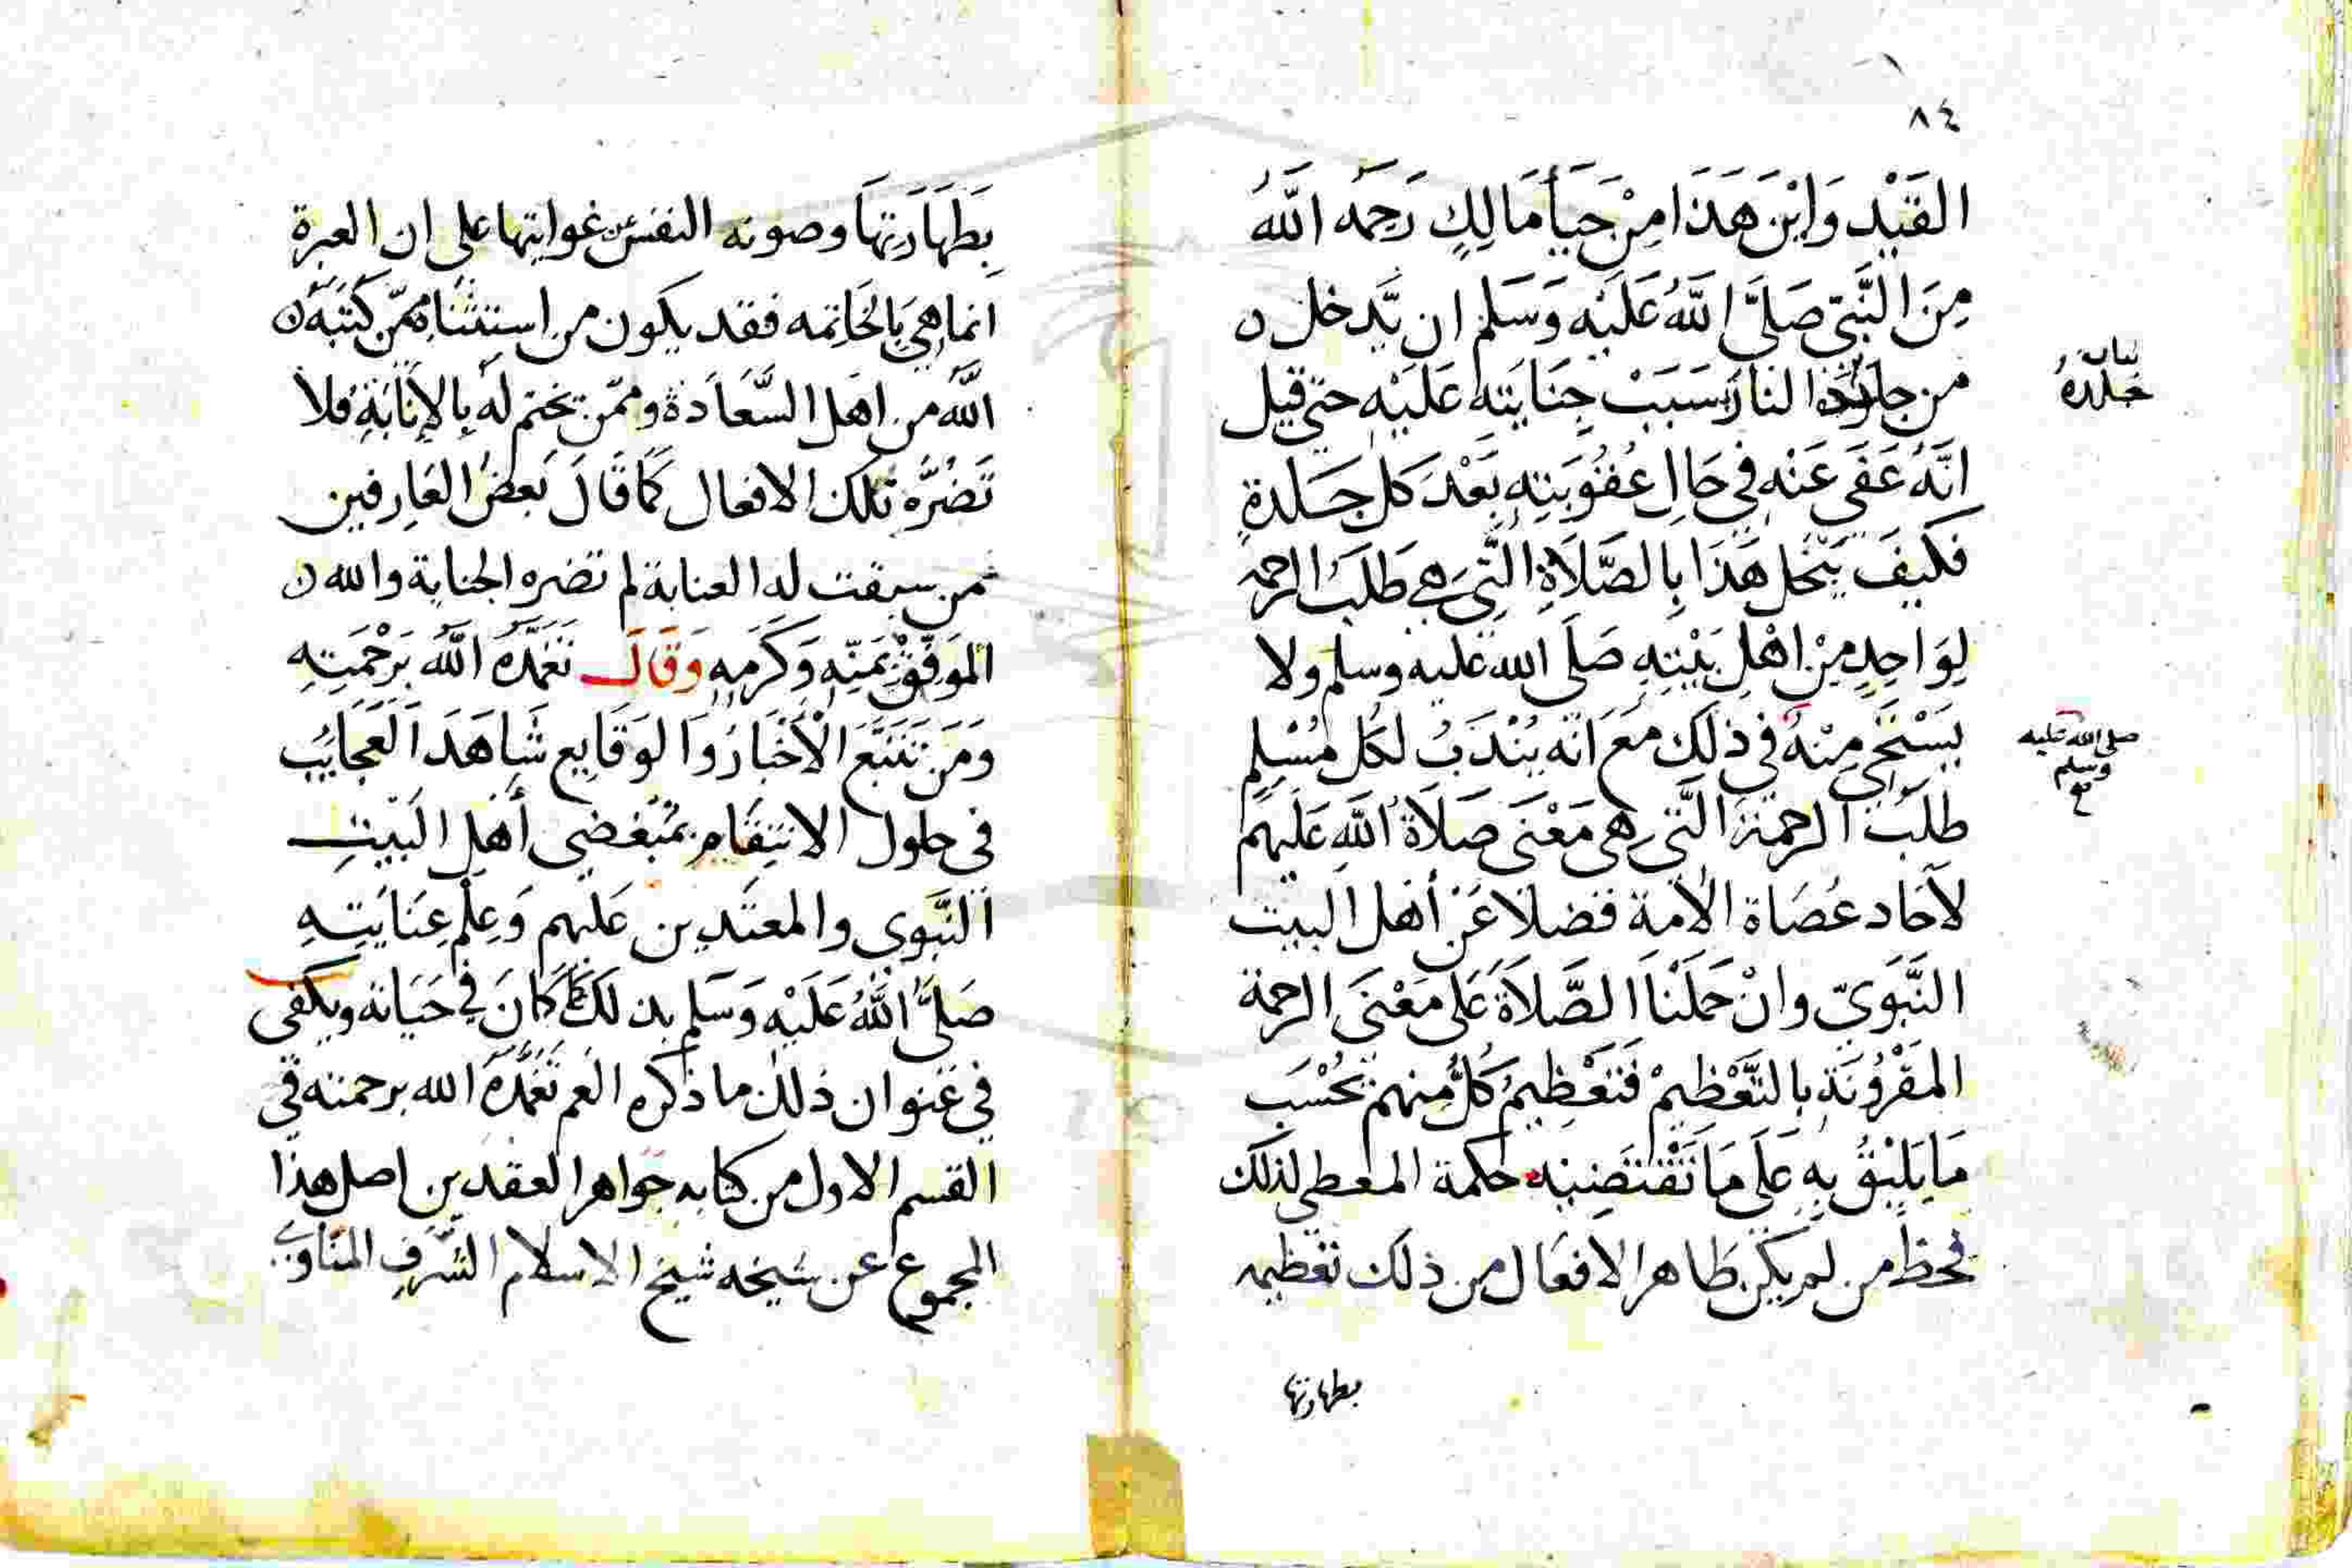 ٨٤
القَيْد وَايْنَ هَذَا مِنْ حَيَأ مَالِكٍ رَحِمَهُ اللَّهُ
مِنَ النَّبِيّ صَلَّى اللَّهُ عَلَيْه وَسَلم ان يَّدخل
من جلده النار بسَبَبْ جِنَايَتِه عَلَيْه حتى قيل
بيان
جلده
انَّهُ عَفَى عَنْه في حَالِ عُقُوبَتِه بَعْدَ كل جَلدةٍ
فكيفَ يَبْخل هَذَا بِالصَّلَاةِ الَّتِى هي طَلَبُ الرحمه
لِوَاحِدٍ مِنْ اهْلِ بَيْتِهِ صَلَى الله عليه وسلم ولا
يَسْتَحي مِنْهُ فى ذلك مَعَ انَّه يُنْدَبُ لكل مُسْلِمٍ
صلى الله عليه
وسلم
طَلَبُ الرحمة الَّتى هى مَعْنَى صَلَاة اللَّهِ عَلَيهم
لآحَاد عُصَاة الامة فضلا عَنْ أهل البيت
النَّبَوِيّ وانْ حَمَلْنَا الصَّلَاةَ عَلى مَعْنَى الرحمة
المَقْرُونَةِ بالتَّعْظِيمْ فَتَعْظِيمُ كُلٍّ مِنهم بحُسْبِ
مَا يَلِيْقُ بِهِ عَلَى مَا تَقْتَضِيْه حكمة المعطى لذلك
فحظ من لم يكن ظاهر الافعَال من ذلك تعظيمه
بطهارتها
بِطَهَارَتِهَا وصونه النفس من غوايتها على ان العبرة
انما هِيَ بِالخَاتمه فقد يكون من استثناه ممّن كَتَبَهُ
اللَّه من اهل السَّعَادَة وممّن يختم لَه بِالإنَابَةِ فلا
تَضُرّه تلك الافعال كَمَا قَالَ بَعضُ العَارفين
من سبقت له العناية لم تضره الجناية والله
المَوفِّقُ بِمَنِّه وَكَرَمِهِ وَقَالَ تَغَمَّدَهُ اللَّه بِرَحْمَتِهِ
وَمَن تَتَبَّعَ الْأخْبَارَ وَالوَقَايع شَاهَدَ العَجَايبَ
فى حلول الانتِقَام بمُبْغضى أهْل البَيْتِ
النَّبَوِى والمعتَدين عَليهم وَعِلْم عِنَايَتِهِ
صَلَّى اللَّهُ عَلَيْه وَسَلم بذلك كمَا كَانَ في حَيَاته ويكفى
في عَنوان ذلك ما ذكره العم تغَمَّدَهُ الله برحمته فى
القسم الاول من كتابه جَواهر العقدين اصل هذا
المجموع عن شيخه شيخ الاسلام الشَّرَفِ المنَاوي